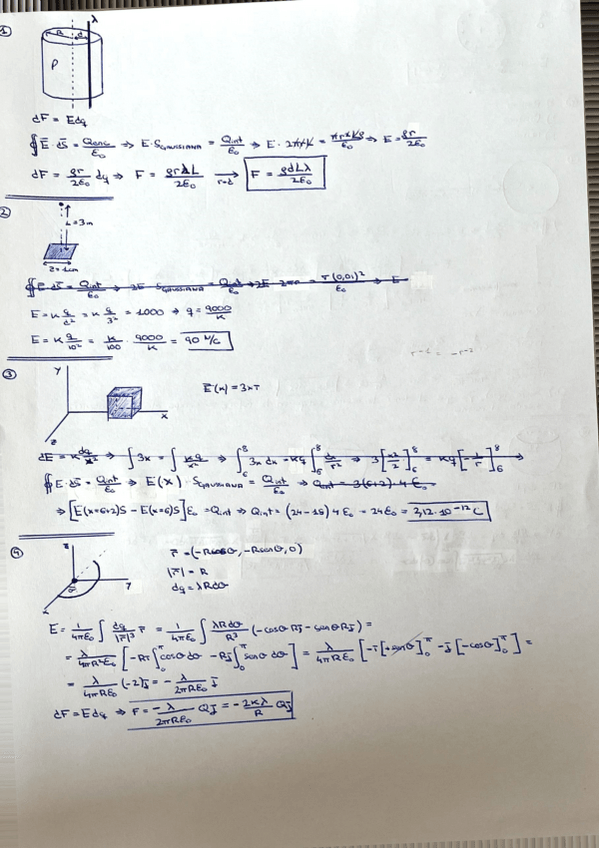 1
R d λ
ρ
dF = Edq
∮ E̅·dS̅ = Qenc/ε₀ ⇒ E·S_GAUSSIANA = Qint/ε₀ ⇒ E·2πrL = πr²Lρ/ε₀ ⇒ E = ρr/2ε₀
dF = ρr/2ε₀ dq ⇒ F = ρrλL/2ε₀ →(r=d) F = ρdLλ/2ε₀
2
L=3m
2=1cm
∮ E̅·dS̅ = Qint/ε₀ ⇒ 2E·S_GAUSSIANA = Qint/ε₀ ⇒ = σ(0,01)²/ε₀ ⇒ E
E = K q/d² = K q/3² = 1000 ⇒ q = 9000/K
E = K q/10² = K/100 · 9000/K = 90 N/C
3
y
E̅(x) = 3x i̅
x
z
dE = K dq/x² ⇒ ∫3x = ∫ Kq/x² ⇒ ∫₆⁸ 3x dx = Kq ∫₆⁸ dx/r² ⇒ 3[x²/2]₆⁸ = Kq[-1/r]₆⁸ ⇒
∮ E̅·dS̅ = Qint/ε₀ ⇒ E(x)·S_GAUSSIANA = Qint/ε₀ ⇒ Qint = 3(6+2)·4ε₀
⇒ [E(x=6+2)S - E(x=6)S]ε₀ = Qint ⇒ Qint = (24-18)4ε₀ = 24ε₀ = 2,12·10⁻¹² C
4
z
r̅ = (-Rcosθ, -Rsenθ, 0)
|r̅| = R
y
dq = λRdθ
x
E = 1/4πε₀ ∫ dq/|r̅|³ r̅ = 1/4πε₀ ∫ λRdθ/R³ (-cosθ Ri̅ - senθ Rj̅) =
= λ/4πR²ε₀ [-Ri̅ ∫₀^π cosθ dθ - Rj̅ ∫₀^π senθ dθ] = λ/4πRε₀ [-i̅[+senθ]₀^π - j̅[-cosθ]₀^π] =
= λ/4πRε₀ (-2)j̅ = -λ/2πRε₀ j̅
dF = Edq ⇒ F = -λ/2πRε₀ Qj̅ = -2Kλ/R Qj̅